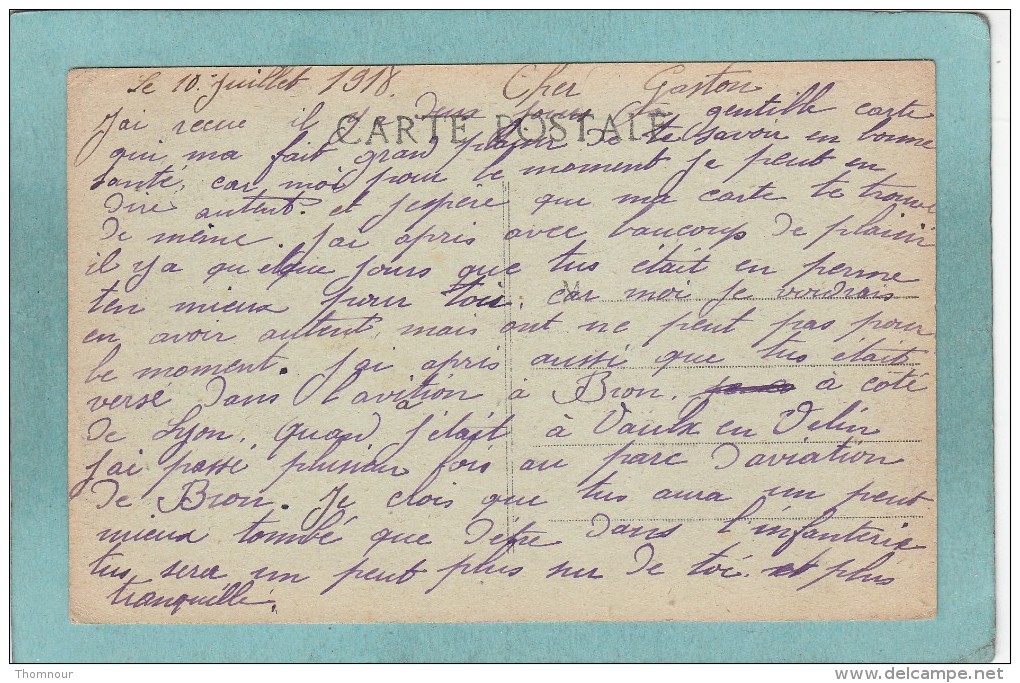 Le 10 juillet 1918. Cher Gaston
J'ai recue il y a deux jours ta gentille carte
CARTE POSTALE
qui ma fait grand plaisir de te savoir en bonne
santé, car moi pour le moment je peut en
dire autent. et j'espère que ma carte te trouve
de même. J'ai apris avec baucoup de plaisir
il y a quelque jours que tus était en perme
ten mieux pour toi. car moi je voidrais
en avoir autent, mais ont ne peut pas pour
le moment. J'ai apris aussi que tus était
versé dans l'avition à Bron. à côté
de Lyon. quand j'était à Vaulx en Velin
j'ai passé plusieur fois au parc d'aviation
de Bron. Je clois que tus aura un peut
mieux tombé que d'être dans l'infanterie
tus sera un peut plus sur de toi et plus
tranquille.
Thomnour
www.delcampe.net